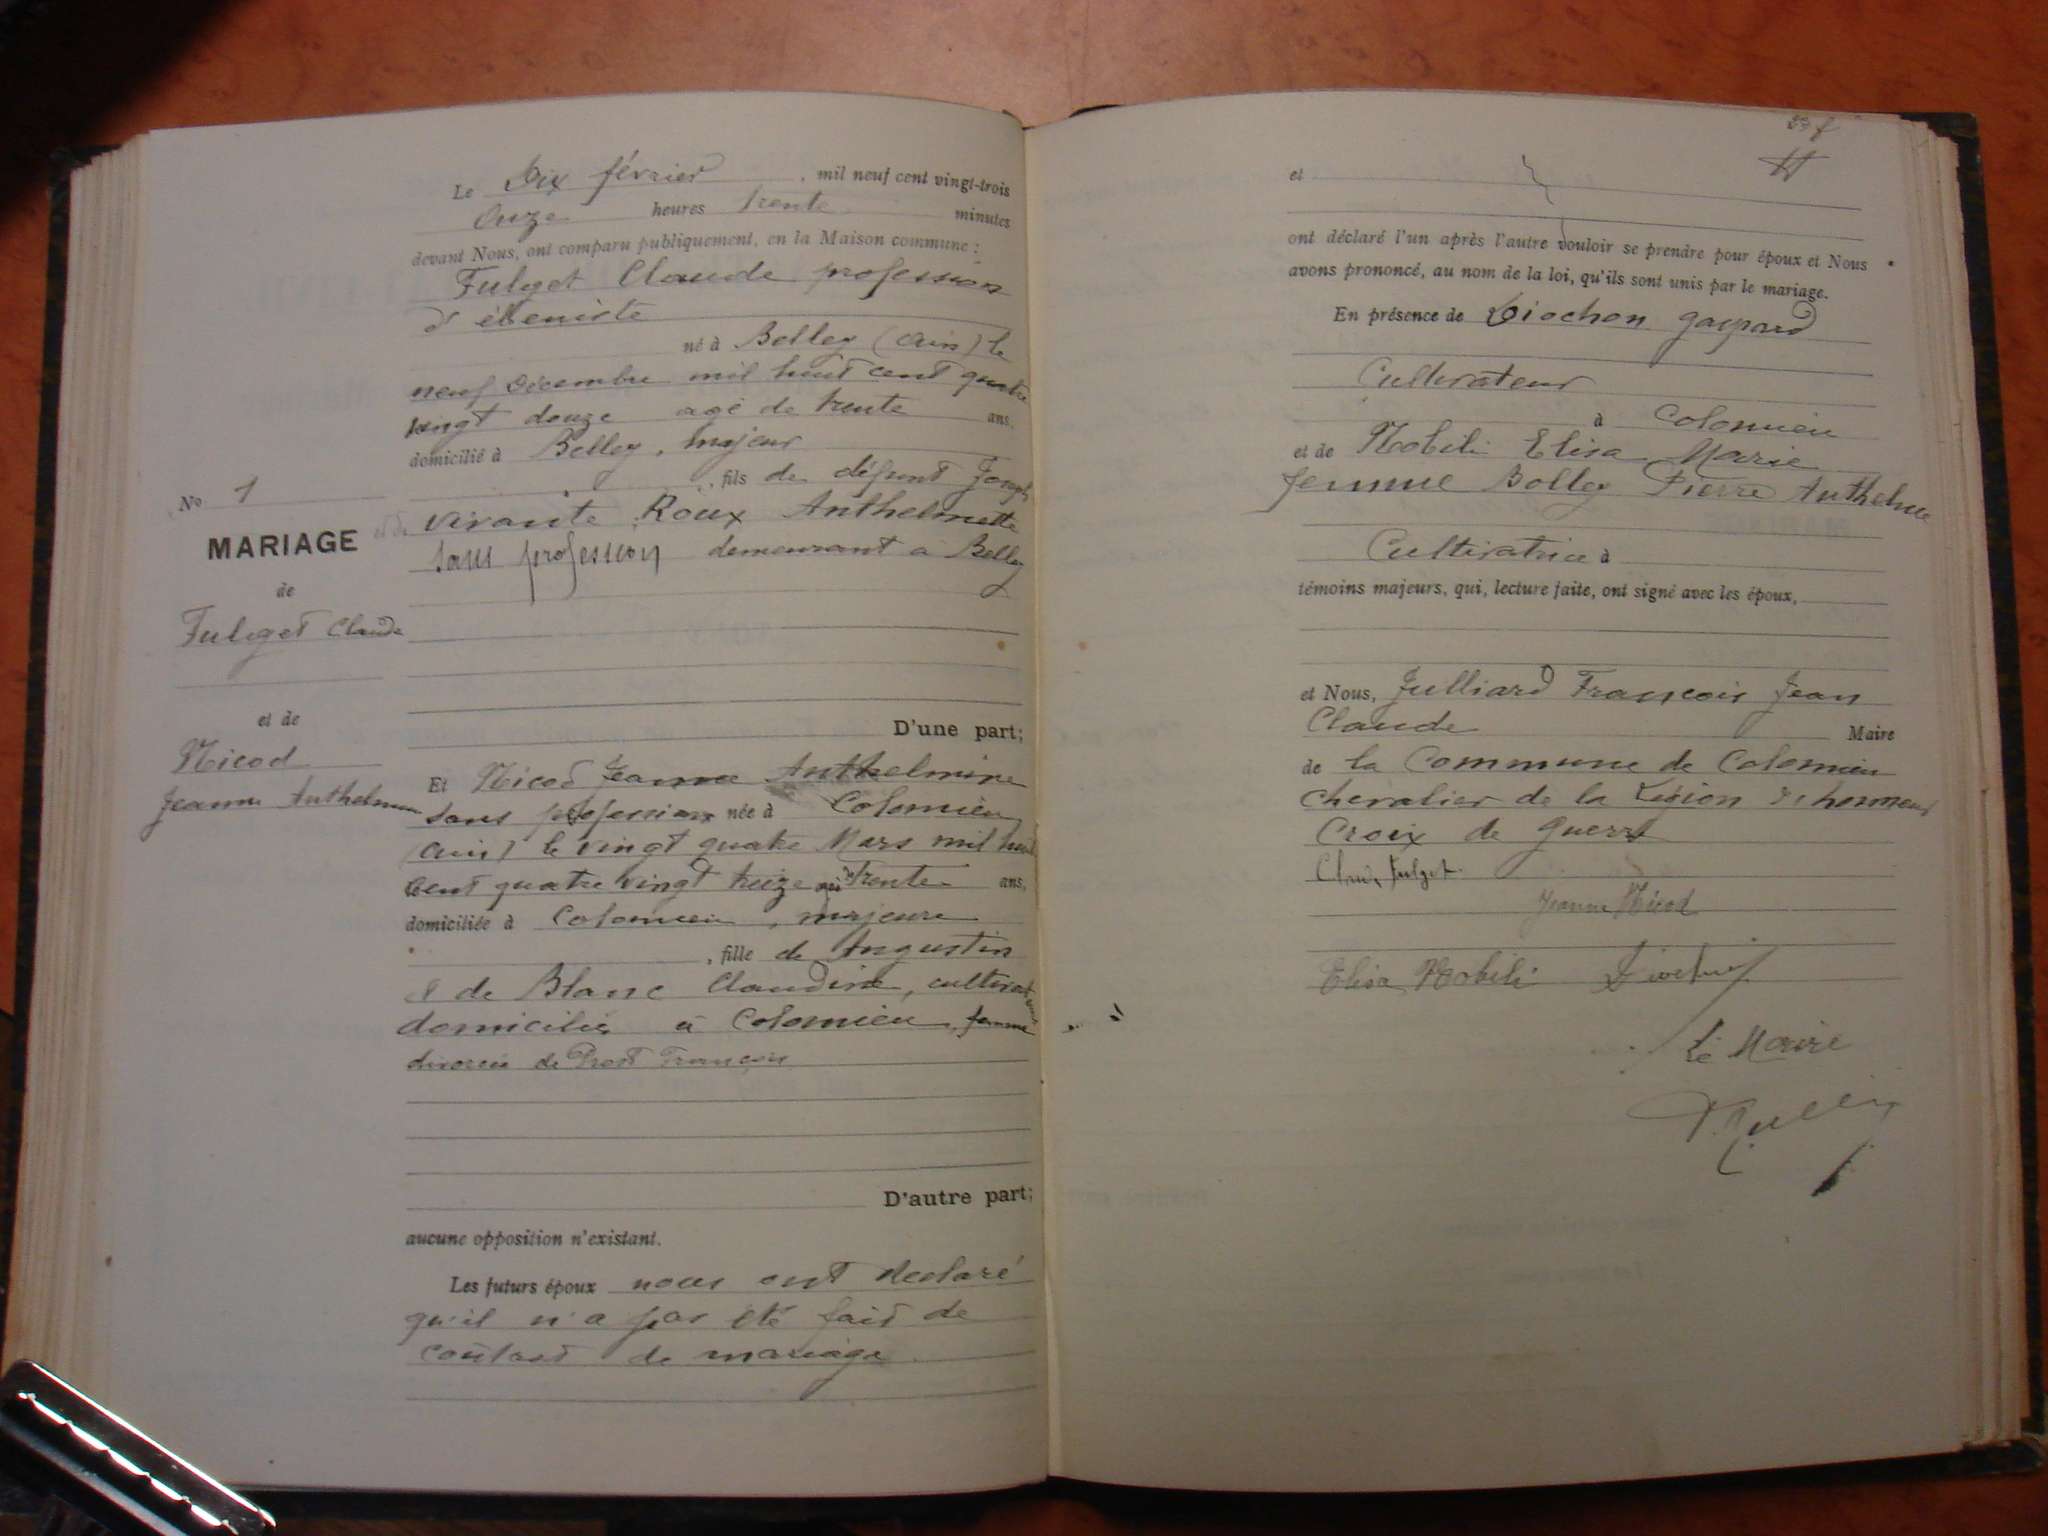 No 1
MARIAGE
de
Fulget Claude
et de
Nicod
Jeanne Anthelmine
Le Dix février, mil neuf cent vingt-trois
Onze heures trente minutes
devant Nous, ont comparu publiquement, en la Maison commune :
Fulget Claude profession
d'ébeniste
né à Belley (Ain) le
neuf Décembre mil huit cent quatre
vingt douze agé de trente ans,
domicilié à Belley, majeur
, fils de défunt Joseph
et de vivante Roux Anthelmette
sans profession demeurant à Belley
D'une part;
Et Nicod Jeanne Anthelmine
sans profession née à Colomieu
(Ain) le vingt quatre Mars mil huit
cent quatre vingt treize agée de trente ans,
domiciliée à Colomieu, majeure
, fille de Augustin
et de Blanc Claudine, cultivateurs
domiciliés à Colomieu, femme
divorcée de Prost François
D'autre part;
aucune opposition n'existant.
Les futurs époux nous ont declaré
qu'il n'a pas été fait de
contrast de mariage
et
ont déclaré l'un après l'autre vouloir se prendre pour époux et Nous
avons prononcé, au nom de la loi, qu'ils sont unis par le mariage.
En présence de Diochon Gaspard
Cultivateur
à Colomieu
et de Nobili Elisa Marie
femme Bolley Pierre Anthelme
Cultivatrice à
témoins majeurs, qui, lecture faite, ont signé avec les époux,
et Nous, Julliard François Jean
Claude Maire
de la Commune de Colomieu
Chevalier de la Légion d'honneur
Croix de Guerre
Claude Fulget
Jeanne Nicod
Elisa Nobili Diochon
Le Maire